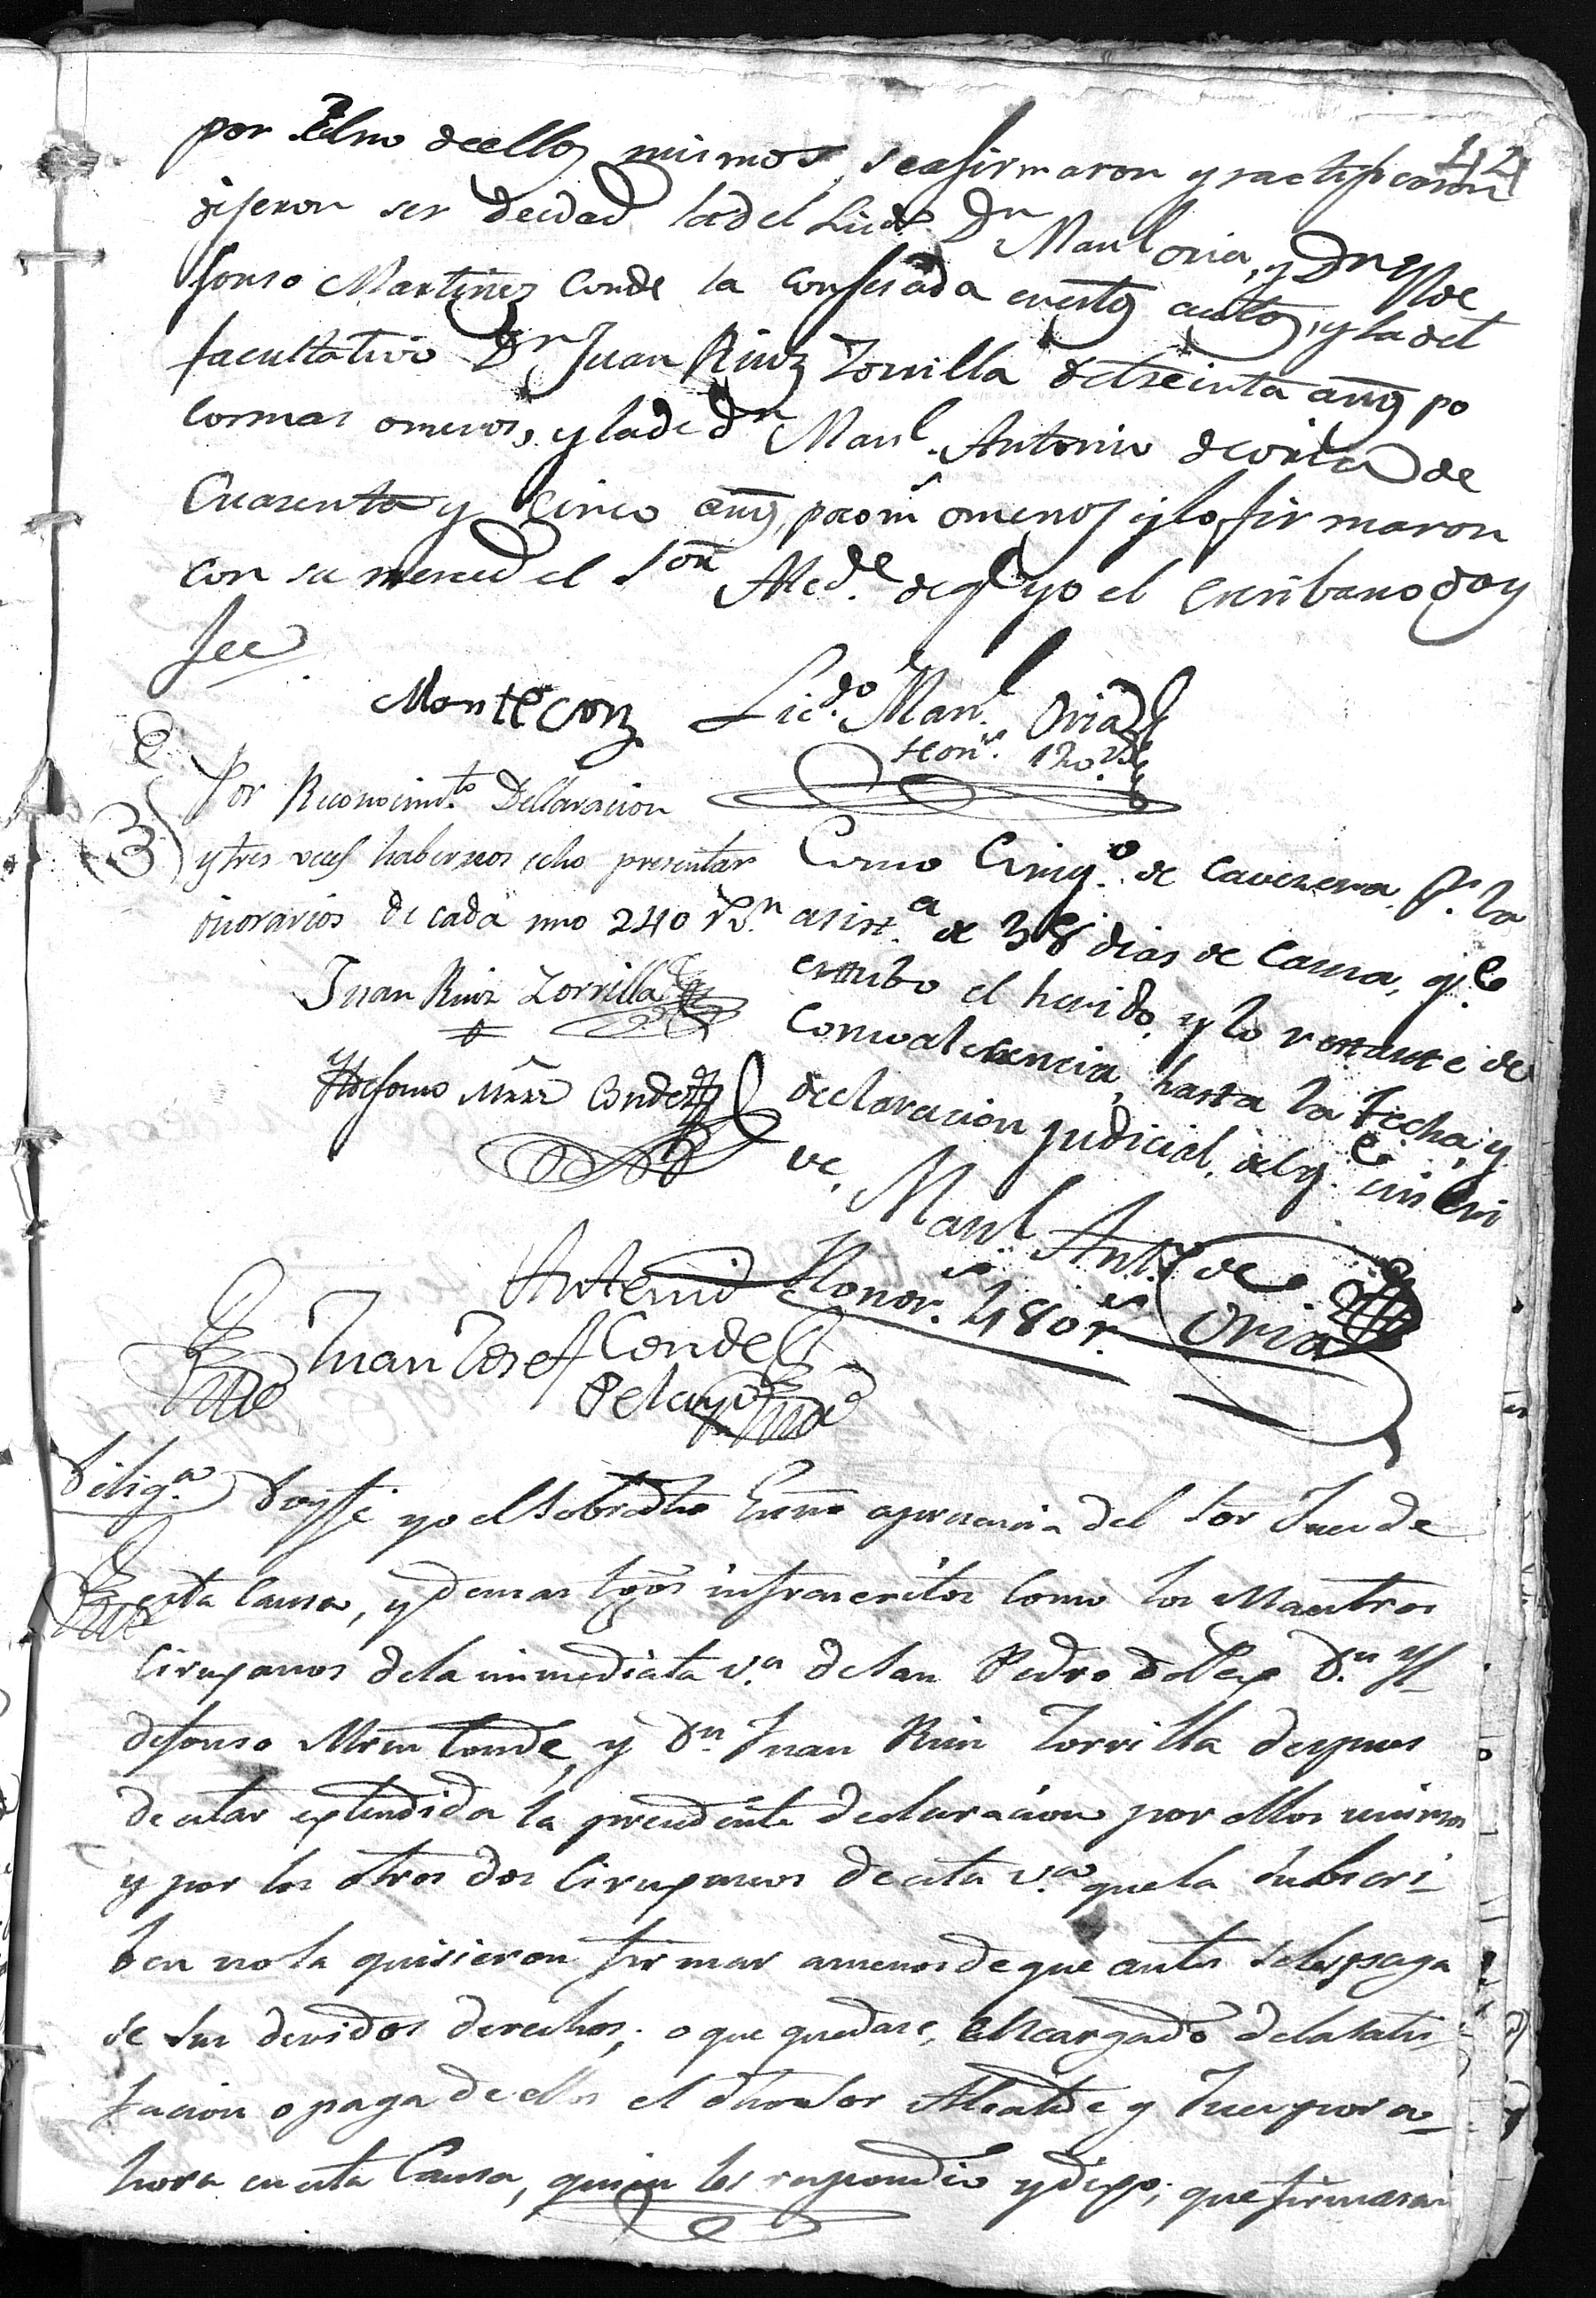 42
por Felmo deellos mismos, seafirmaron y ractificaron
dijeron ser deedad lade el Licdo. Dn Manl. Oria, y Dn Ylde
fonso Martinez Conde la confesada enestos autos, y la del
facultativo Dn Juan Ruiz Zorrilla detreinta años po
comas omenos, y la de Dn Manl. Antonio deoria de
Cuarenta y Cinco años, pocom omenos y lo firmaron
con su merced el Sor Alcde. de qe yo el escribano doy
fee
Montecon
Licdo. Manl. Oria
Honrs. 120 rs
Por Reconocimto. Declaracion
y tres veces habernos echo presentar
onorarios de cada uno 240 Rn.
Juan Ruiz Zorrilla
Yldefonso Mrnz Conde
Como Cirugo. de Cavecera Pr. la
asista. de 38 dias de Cama, qe.
estubo el herido, y lo restante de
Convalescencia, hasta la fecha, y
declaracion judicial, del qe. suscri
ve,
Manl. Anto. de Oria
Honors. 480 rs.
Antemi
Juan Josef Conde
Pelayo
Diliga.
Doy fe yo el sobredho Essno apresencia del sor Juez de
esta Causa, y demas tgos infraescritos como los Maestros
Cirujanos de la inmediata va. de san Pedro del Dn. Yl
defonso Mrnz Conde, y Dn. Juan Ruiz Zorrilla despues
de estar extendida la precedente declaracion por ellos mismos
y por los otros dos Cirujanos de esta va. que la subscri
ben no la quisieron firmar amenos de que antes se les paga
se sus devidos derechos; o que quedase, encargado de la satis
facion o paga de ellos el dho sor Alcalde y Juez por a
hora en esta Causa, quien les respondio y dijo; que firmasen